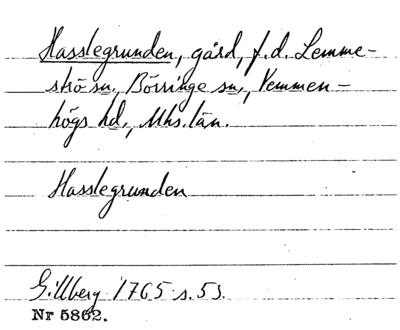 Hasslegrunden, gård, f.d. Lemme-
strö sn., Börringe sn., Vemmen-
högs hd., Mhs. län.
Hasslegrunden
Gillberg 1765 s. 53.
Nr 5862.